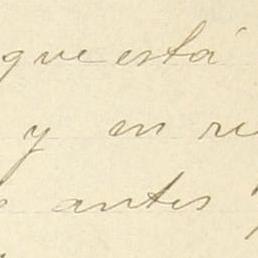 que está
y en
antes